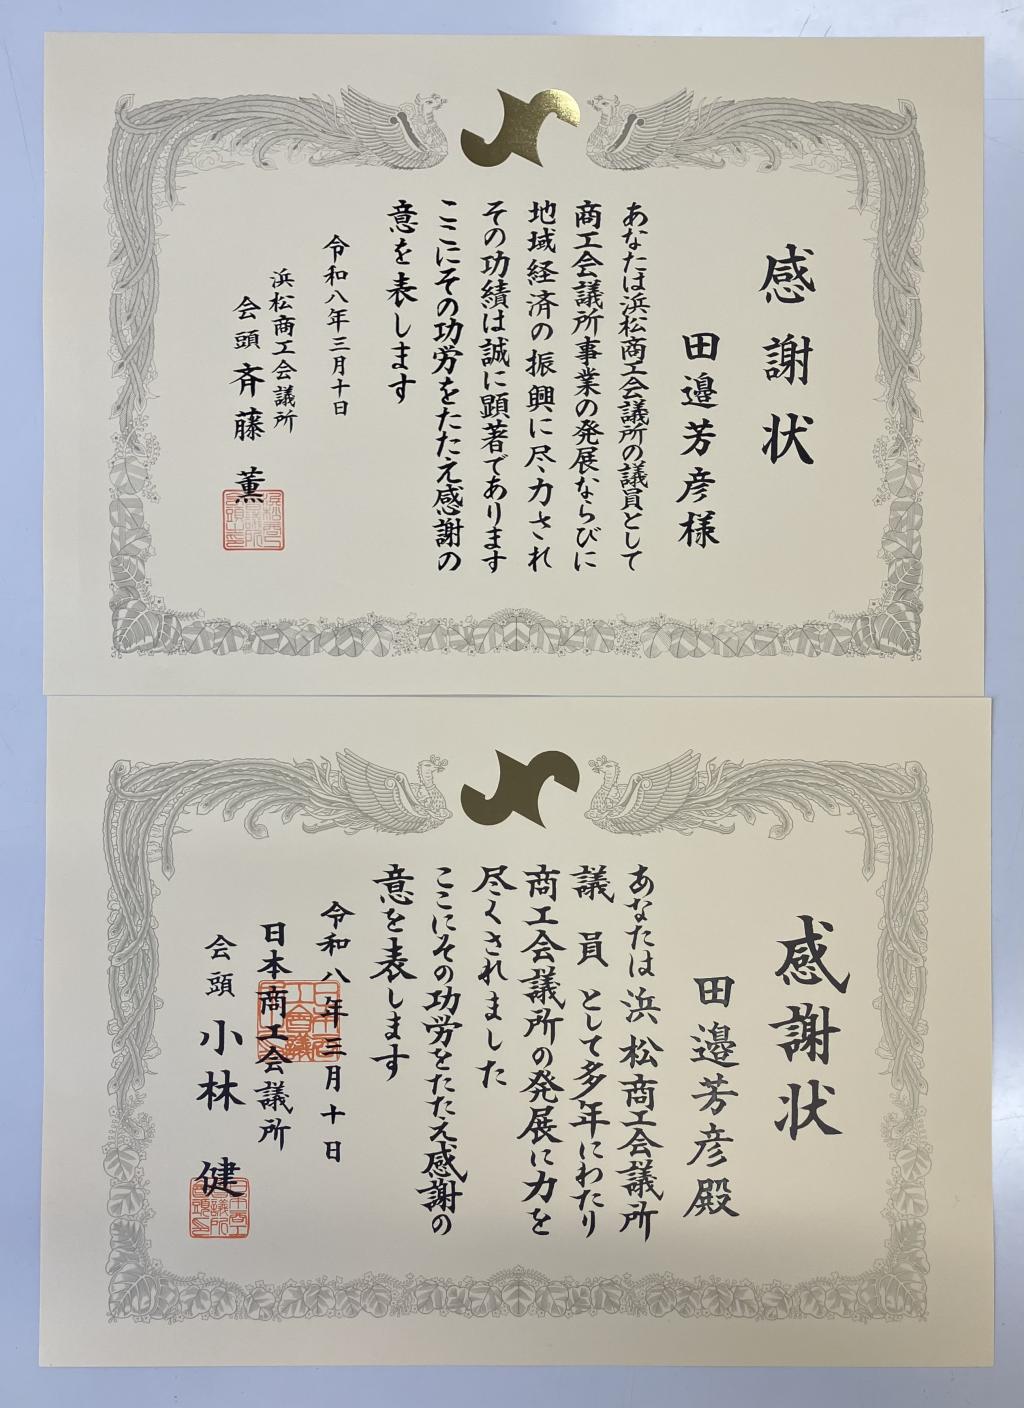 感謝状
田邉芳彦様
あなたは浜松商工会議所の議員として
商工会議所事業の発展ならびに
地域経済の振興に尽力され
その功績は誠に顕著であります
ここにその功労をたたえ感謝の
意を表します
令和八年三月十日
浜松商工会議所
会頭 斉藤 薫
感謝状
田邉芳彦殿
あなたは浜松商工会議所
議員として多年にわたり
商工会議所の発展に力を
尽くされました
ここにその功労をたたえ感謝の
意を表します
令和八年三月十日
日本商工会議所
会頭 小林 健